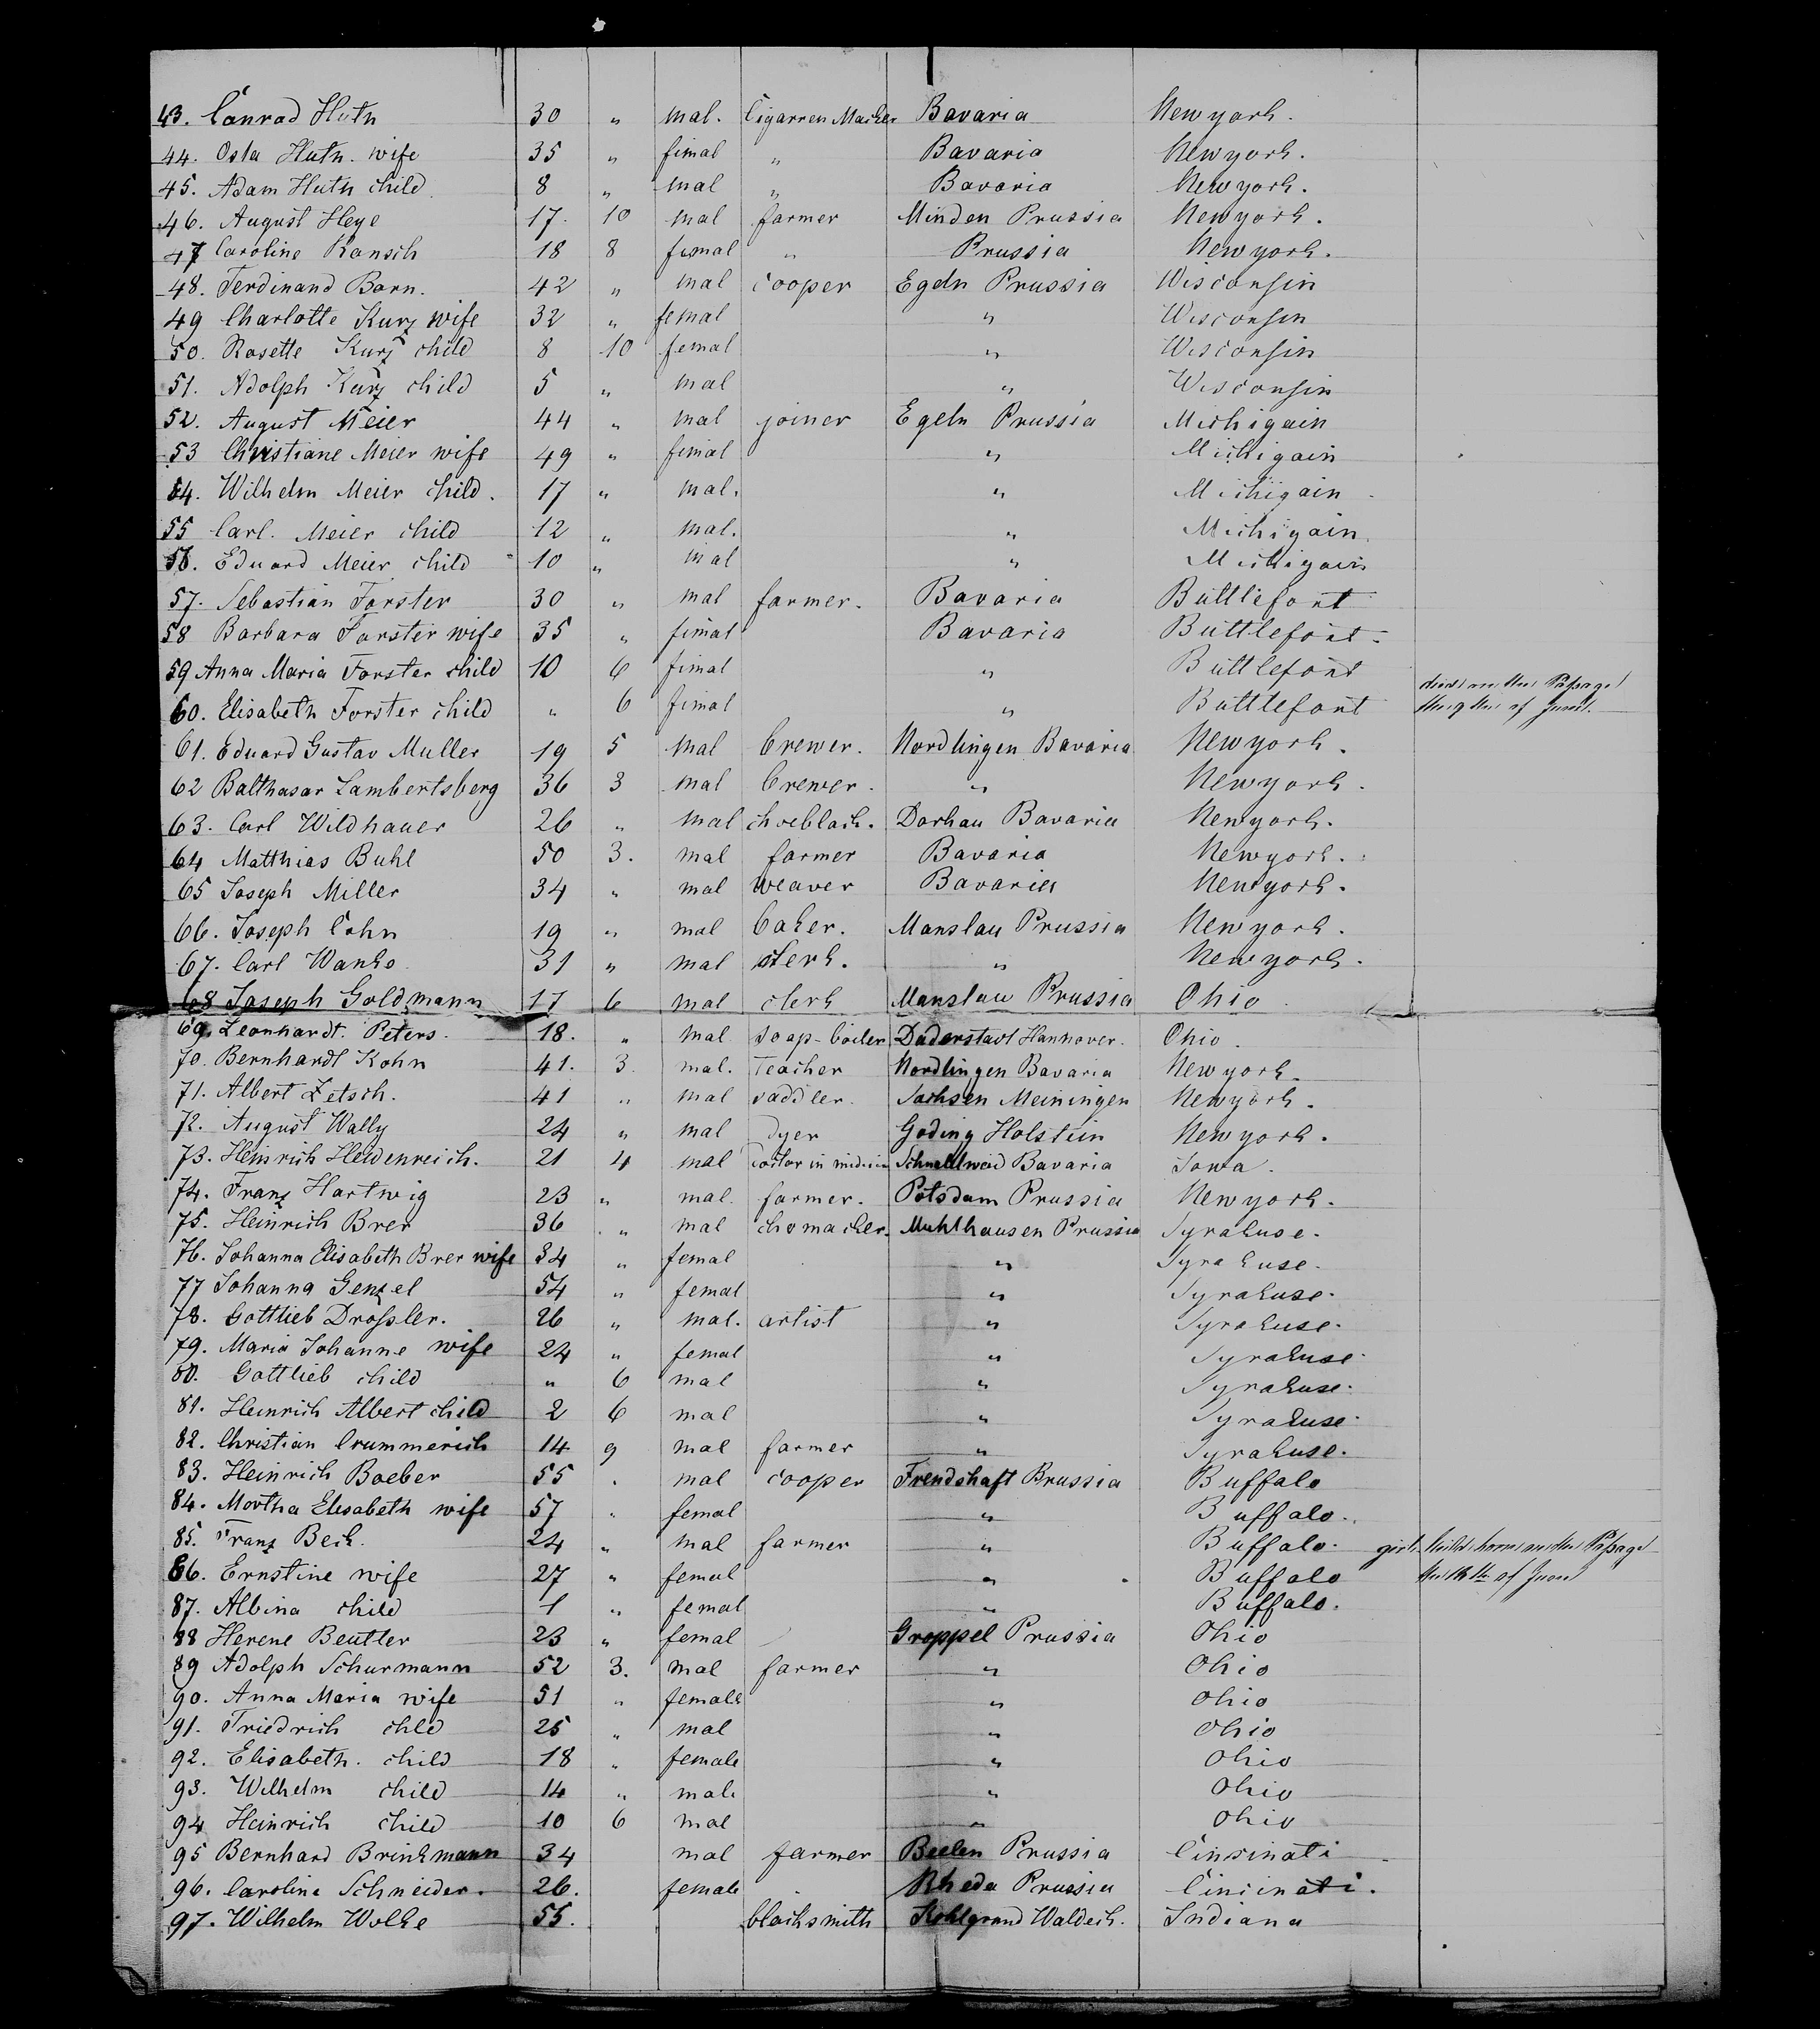 43. Conrad Huth 30 " mal. Cigarren Macher Bavaria Newyork.
44. Osla Huth. wife 35 " fimal " Bavaria Newyork.
45. Adam Huth child 8 " mal " Bavaria Newyork.
46. August Heye 17. 10 mal farmer Minden Prussia Newyork.
47 Caroline Kansch 18 8 fimal " Prussia Newyork.
48. Ferdinand Born. 42 " mal cooper Egeln Prussia Wisconsin
49 Charlotte Kurz wife 32 " femal " Wisconsin
50. Rosette Kurz child 8 10 femal " Wisconsin
51. Adolph Kurz child 5 " mal " Wisconsin
52. August Meier 44 " mal joiner Egeln Prussia Michigain
53 Christiane Meier wife 49 " fimal " Michigain
54. Wilhelm Meier child. 17 " mal. " Michigain
55 Carl. Meier child 12 " mal. " Michigain.
56. Eduard Meier child 10 " mal " Michigain
57. Sebastian Forster 30 " mal farmer. Bavaria Buttlefort
58 Barbara Forster wife 35 " fimal Bavaria Buttlefort.
59 Anna Maria Forster child 10 6 fimal " Buttlefort
60. Elisabeth Forster child " 6 fimal " Buttlefort died on the Passage the 9 the of June.
61. Eduard Gustav Muller 19 5 mal brewer. Nordlingen Bavaria Newyork.
62 Balthasar Lambertsberg 36 3 mal brewer. " Newyork.
63. Carl Wildhauer 26 " mal choeblack. Dorhau Bavaria Newyork.
64 Matthias Buhl 50 3. mal farmer Bavaria Newyork.
65 Joseph Miller 34 " mal weaver Bavaria Newyork.
66. Joseph Cohn 19 " mal baker. Manslau Prussia Newyork.
67. Carl Wanko 31 " mal clerk. " Newyork.
68 Joseph Goldmann 17 6 mal clerk Manslau Prussia Ohio
69. Leonhardt. Peters. 18. " mal soap-boiler Daderstadt Hannover. Ohio.
70. Bernhardt Kohn 41. 3. mal. Teacher Nordlingen Bavaria Newyork.
71. Albert Zetsch. 41 " mal saddler. Sachsen Meiningen Newyork.
72. August Wally 24 " mal dyer Goding Holstein Newyork.
73. Heinrich Heidenreich. 21 4 mal doctor in medicin Bavaria Iowa.
74. Franz Hartwig 23 " mal. farmer. Potsdam Prussia Newyork.
75. Heinrich Brer 36 " mal chomacker. Muhlhausen Prussia Syrakuse.
76. Johanna Elisabeth Brer wife 34 " femal " Syrakuse.
77 Johanna Genzel 54 " femal " Syrakuse.
78. Gottlieb Drossler. 26 " mal. artist " Syrakuse.
79. Maria Johanne wife 24 " femal " Syrakuse
80. Gottlieb child " 6 mal " Syrakuse.
81. Heinrich Albert child 2 6 mal " Syrakuse.
82. Christian Crummerich 14 9 mal farmer " Syrakuse.
83. Heinrich Boeber 55 " mal cooper Frendshaft Prussia Buffalo
84. Martha Elisabeth wife 57 " femal " Buffalo.
85. Franz Beck. 24 " mal farmer " Buffalo. girl child born on the Passage
86. Ernstine wife 27 " femal " Buffalo the 16 the of June
87. Albina child 1 " femal " Buffalo.
88 Herene Beutler 23 " femal Groppel Prussia Ohio
89 Adolph Schurmann 52 3. mal farmer " Ohio
90. Anna Maria wife 51 " female " Ohio
91. Friedrich chld 25 " mal " Ohio
92. Elisabeth. child 18 " female " Ohio
93. Wilhelm child 14 " mal. " Ohio
94 Heinrich child 10 6 mal " Ohio
95 Bernhard Brinkmann 34 mal farmer Beelen Prussia Cinsinati
96. Caroline Schneider. 26. female Rheda Prussia Cincinati.
97. Wilhelm Wolke 55. blacksmith Kohlgrund Waldeck. Indiana